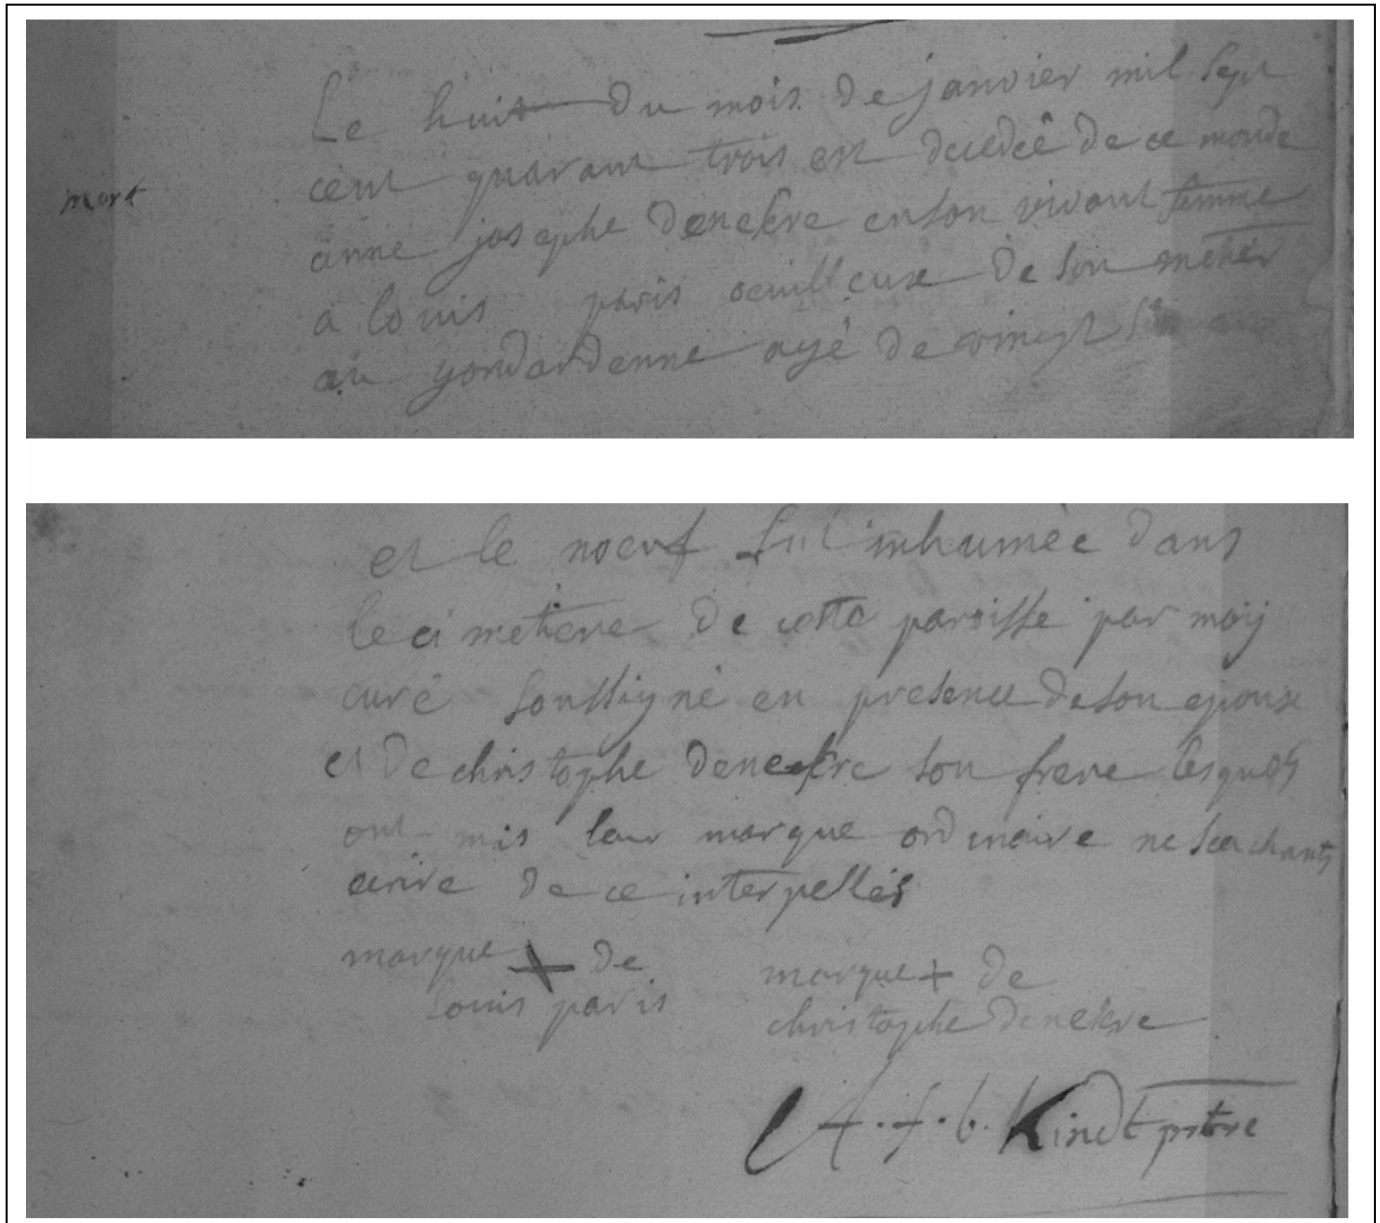 Le huit du mois de janvier mil sept
cent quarant trois est decedeé de ce monde
mort
anne josephe denekre enson vivant femme
a louis paris de son metier
au gondardenne agé de vingt
et le noeuf fut inhumée dans
le cimetiere de cette paroisse par moij
curé soussigné en presence de son epoux
et de christophe denekre son frere lesquels
ont mis leur marque ordinaire ne sachants
ecrire de ce interpellés
marque + de
louis paris
marque + de
christophe denekre
A.f.b. Kindt prtre